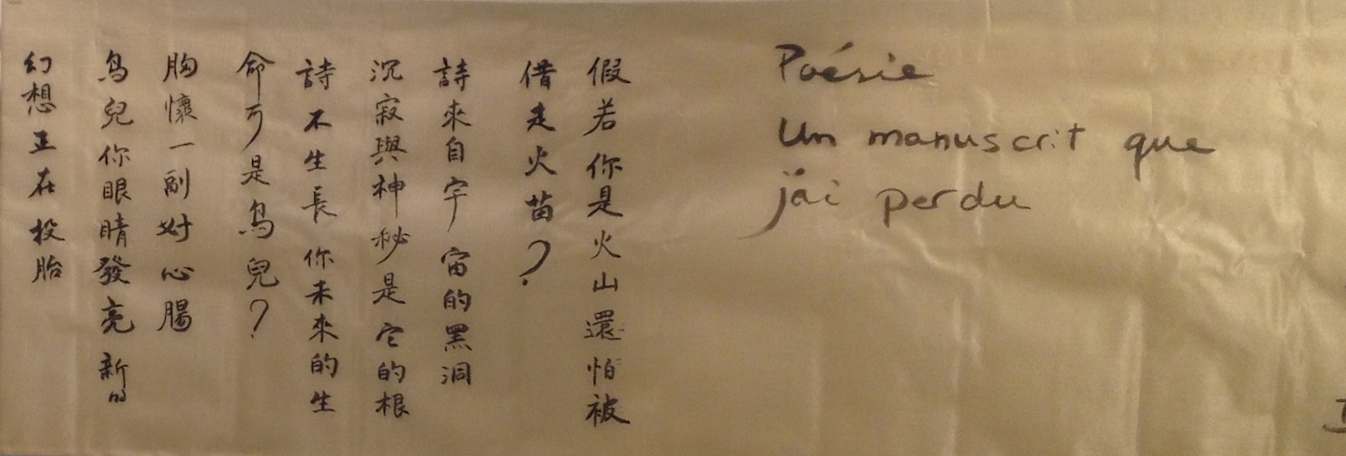 Poésie
Un manuscrit que
j'ai perdu
假若你是火山還怕被
借走火苗?
詩來自宇宙的黑洞
沉寂與神秘是它的根
詩不生長 你未來的生
命可是鳥兒?
胸懷一副好心腸
鳥兒你眼睛發亮 新的
幻想正在投胎